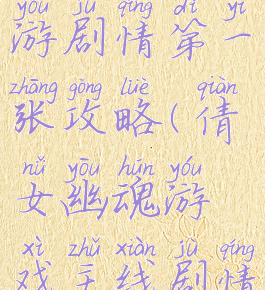 yóu jù qíng dì yī
游剧情第一
zhāng gōng lüè qiàn
张攻略(倩
nǚ yōu hún yóu
女幽魂游
xì zhǔ xiàn jù qíng
戏主线剧情